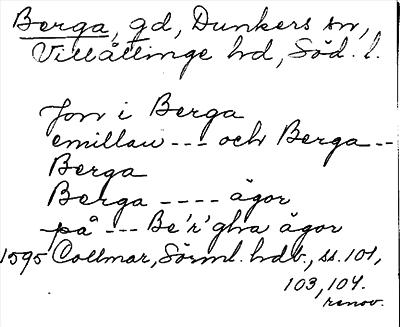 Berga, gd, Dunkers sn,
Villåttinge hd, Söd. l.
Jon i Berga
emillan --- och Berga --
Berga
Berga ---- ägor
på --- Be'r'gha ägor
1595 Collmar, Sörml. hdb., ss. 101,
103, 104.
renov.